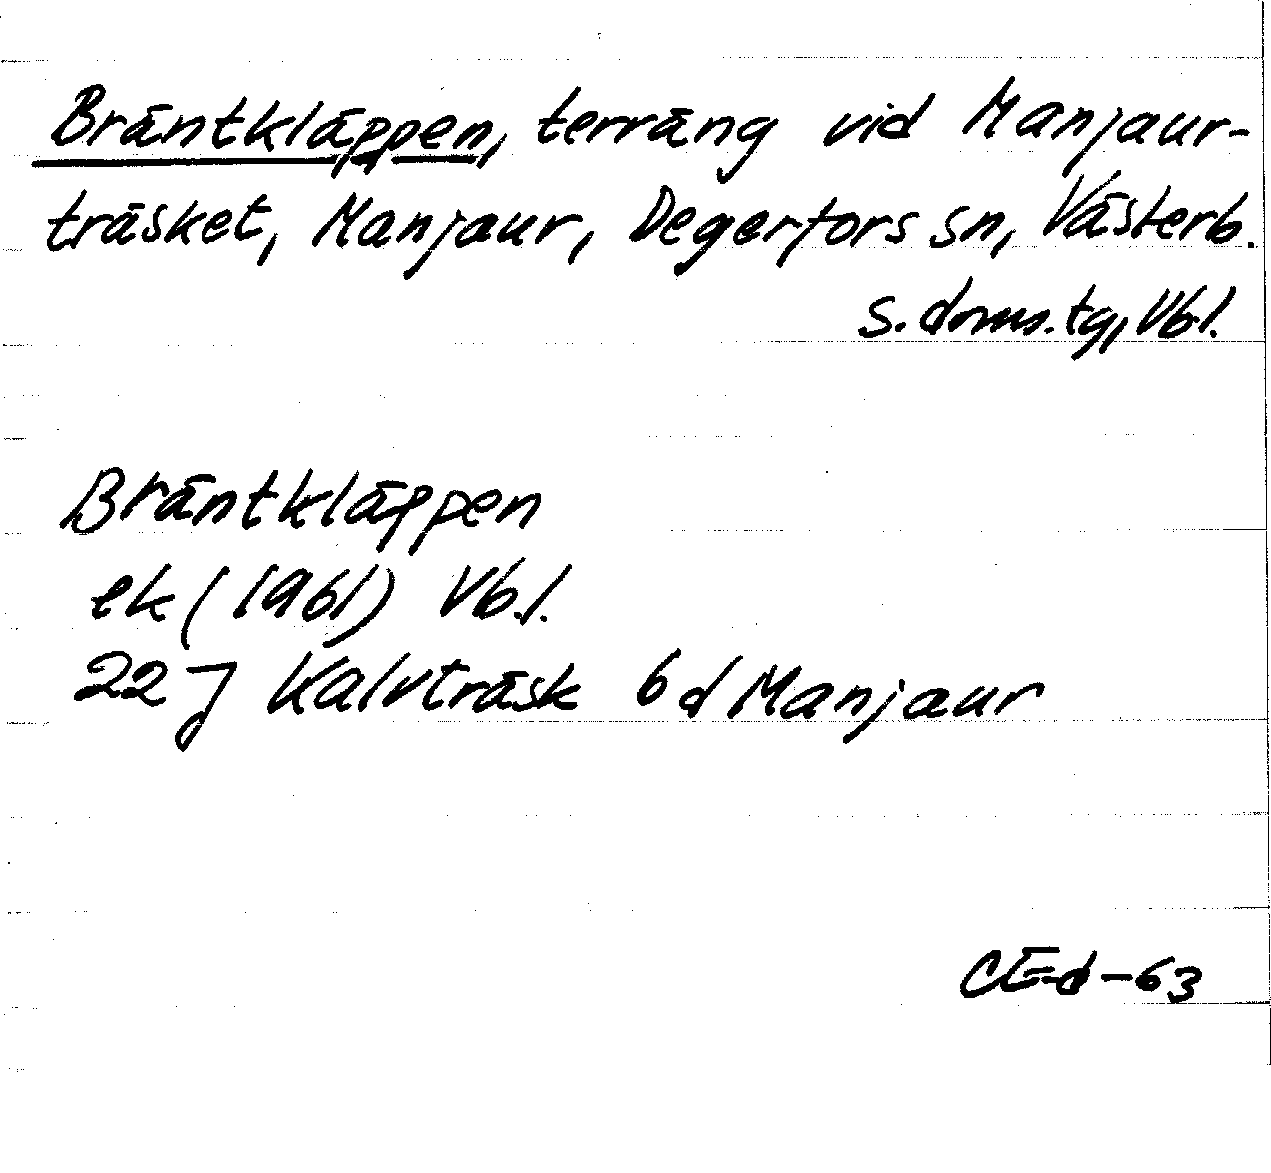 Bräntkläppen, terräng vid Manjaur-
träsket, Manjaur, Degerfors sn, Västerb.
s. doms. tg, Vb.l.
Bräntkläppen
ek (1961) Vb.l.
22 J Kalvträsk 6 d Manjaur
CEd-63